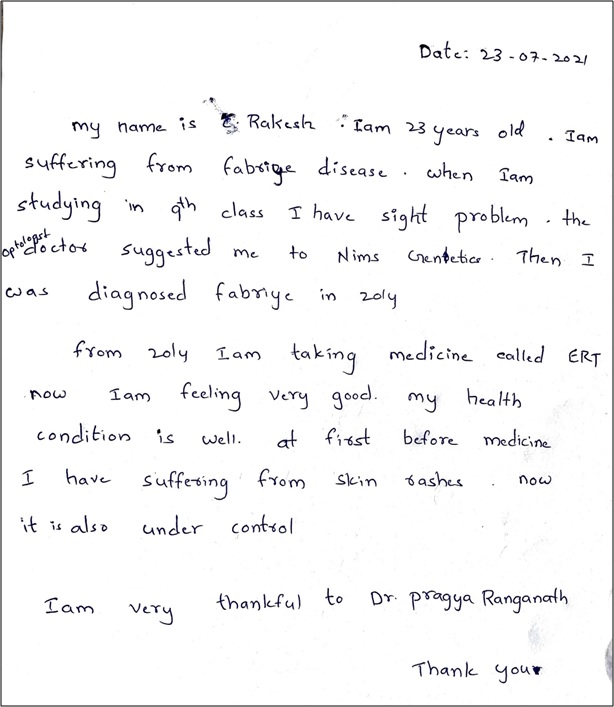 Date: 23-07-2021
my name is C. Rakesh. Iam 23 years old. Iam
suffering from fabrige disease. when Iam
studying in 9th class I have sight problem. the
optolopst doctor suggested me to Nims Genbetics. Then I
was diagnosed fabriye in 2014
from 2014 Iam taking medicine called ERT
now Iam feeling very good. my health
condition is well. at first before medicine
I have suffering from skin rashes. now
it is also under control
Iam very thankful to Dr. pragya Ranganath
Thank you